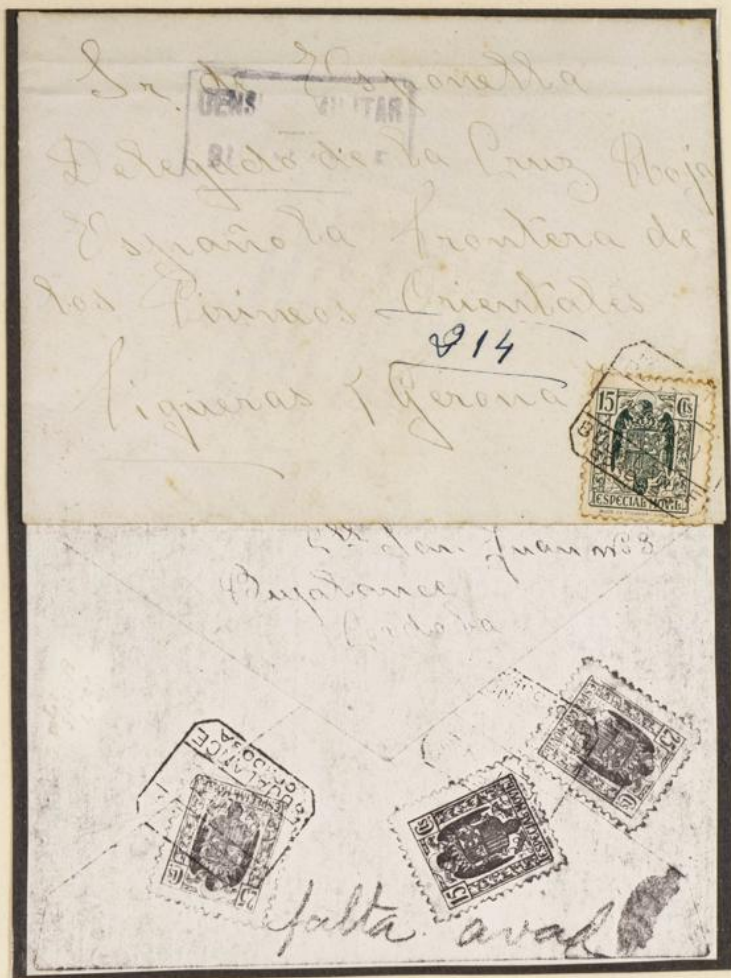 Sr. de Esponellá
CENS MILITAR
Delegado de la Cruz Roja
Española Frontera de
los Pirineos Orientales
814
Figueras (Gerona)
15 Cts
ESPECIAL MOVIL
San Juan nº 63
Bujalance
Cordoba
BUJALANCE
CORDOBA
25 Cts
15 Cts
25 Cts
falta aval